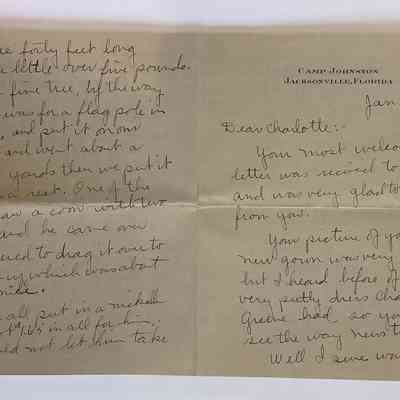 forty feet long
little over five pounds.
fine tree, by the way
was for a flag pole in
and put it on our
and went about a
yards then we put it
a rest. One of the
saw a coon with two
and he came over
to drag it over to
which was about
mile.
all put in a nickell
in all for him,
not let him take
CAMP JOHNSTON
JACKSONVILLE, FLORIDA
Jan
Dear Charlotte:-
Your most welco
letter was recived to
and was very glad to
from you.
Your picture of yo
new gown was very
but I heard before of
very pretty dress Cha
Greene had so yo
see the way news t
Well I sure wo